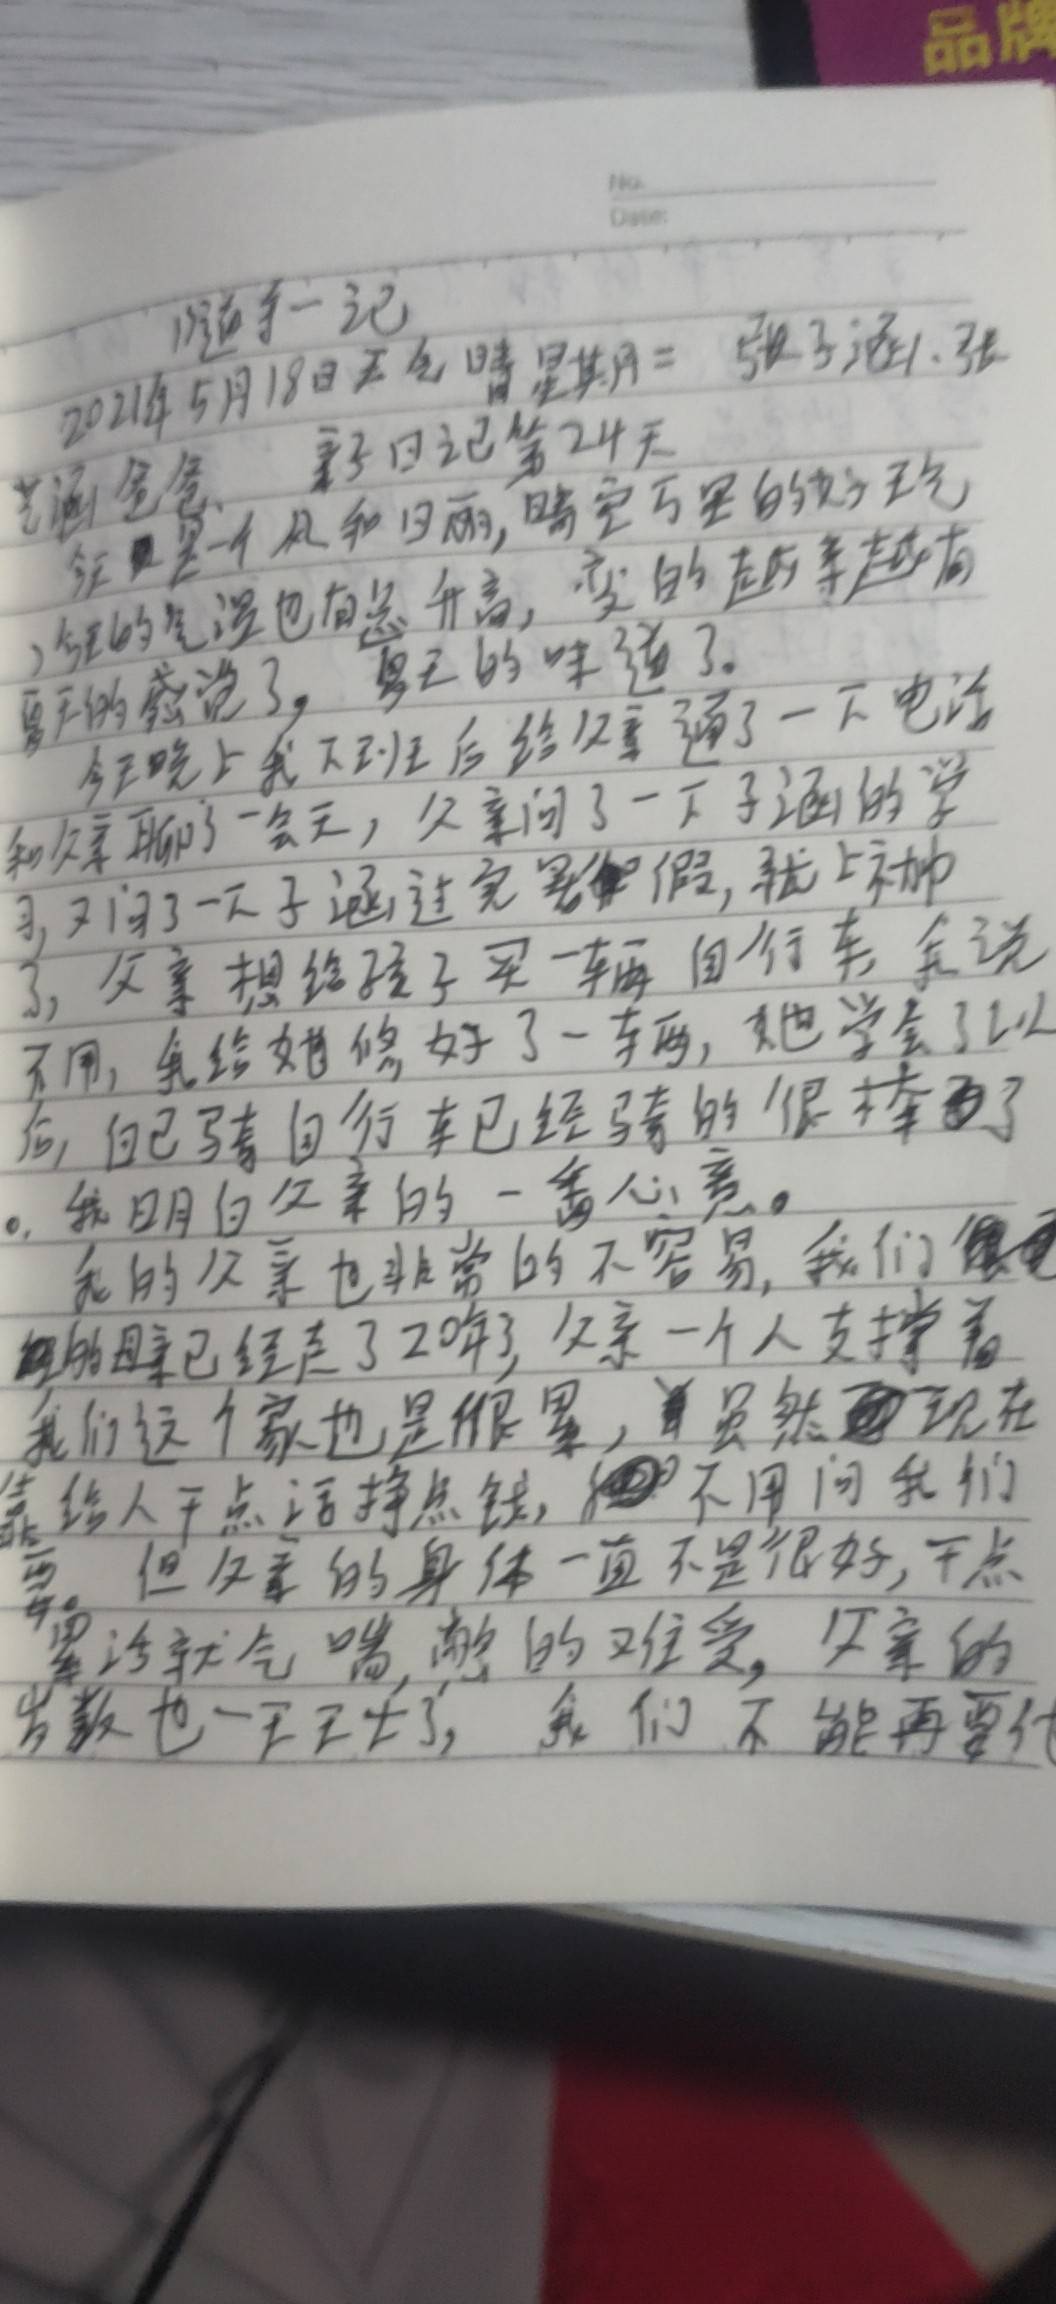 品牌
No.
Date:
随手一记
2021年5月18日天气晴星期二 张子涵、张
艺涵爸爸、 亲子日记第24天
今天是一个风和日丽,晴空万里的好天气
,今天的气温也有总升高,变的越来越有
夏天的感觉了。夏天的味道了。
今天晚上我下班后给父亲通了一下电话
和父亲聊了一会天,父亲问了一下子涵的学
习,又问了一下子涵过完暑假,就上初中
了,父亲想给孩子买一辆自行车,我说
不用,我给她修好了一辆,她学会了以
后,自己骑自行车已经骑的很棒了
。我明白父亲的一番心意。
我的父亲也非常的不容易,我们
的母亲已经走了20年了,父亲一个人支撑着
我们这个家也是很累,虽然现在
给人干点活挣点钱,不用问我们
要。但父亲的身体一直不是很好,干点
累活就气喘,憋的又难受。父亲的
岁数也一天天大了,我们不能再要他